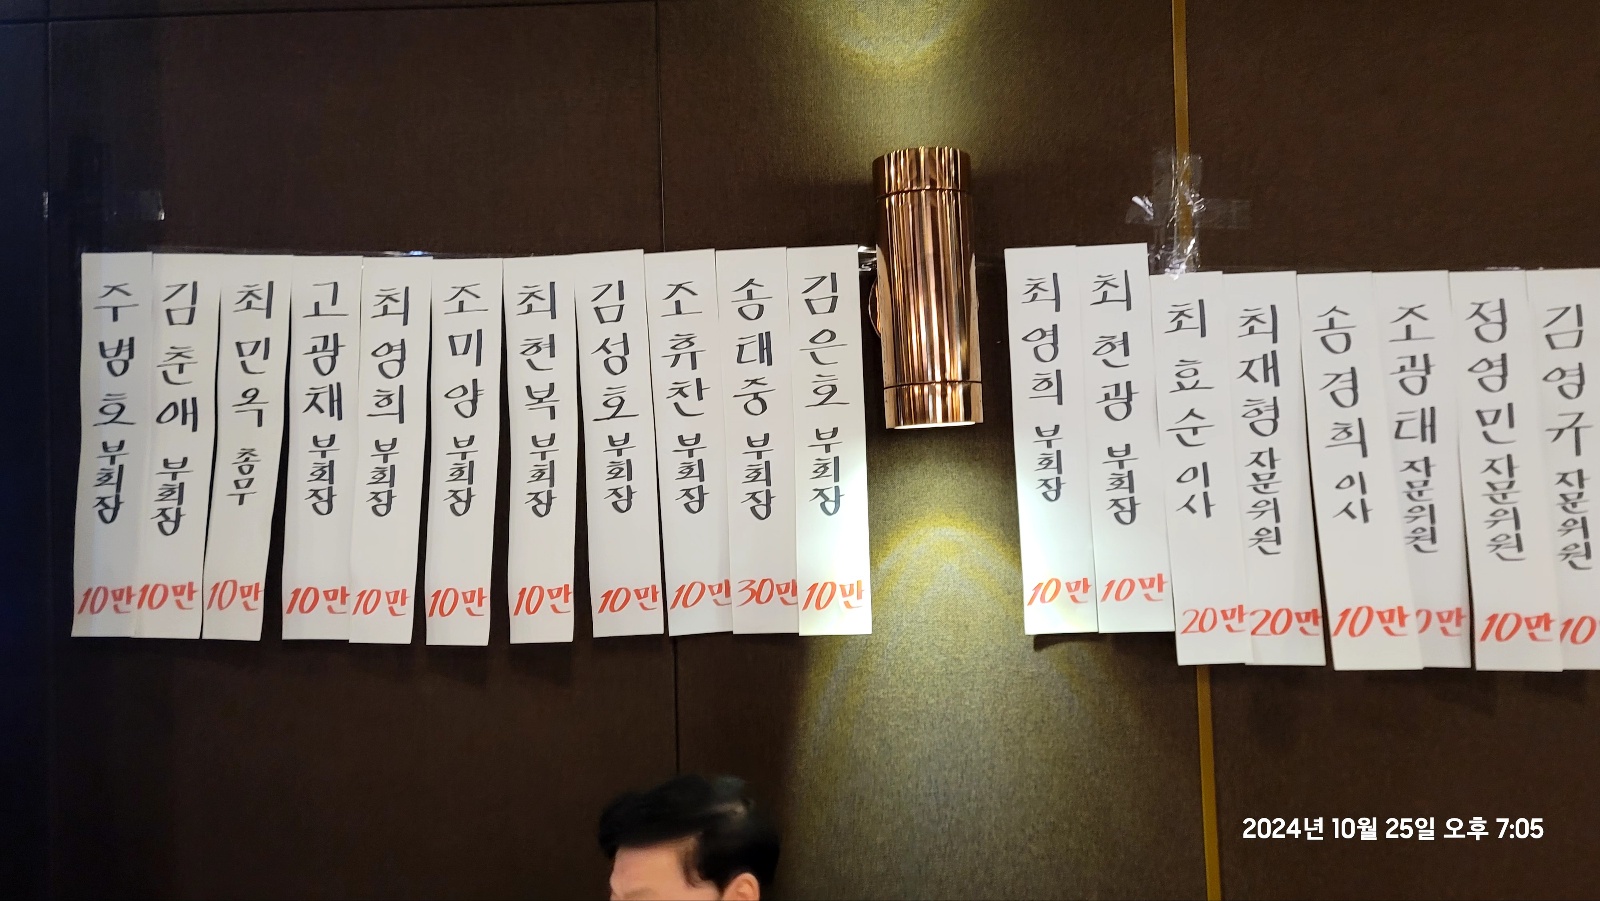 주병호 부회장 10만
김춘애 부회장 10만
최민옥 총무 10만
고광채 부회장 10만
최영희 부회장 10만
조미양 부회장 10만
최헌복 부회장 10만
김성호 부회장 10만
조휴찬 부회장 10만
송태중 부회장 30만
김은호 부회장 10만
최영희 부회장 10만
최헌광 부회장 10만
최효순 이사 20만
최재형 자문위원 20만
송경희 이사 10만
조광태 자문위원 0만
정영민 자문위원 10만
김영규 자문위원 10
2024년 10월 25일 오후 7:05